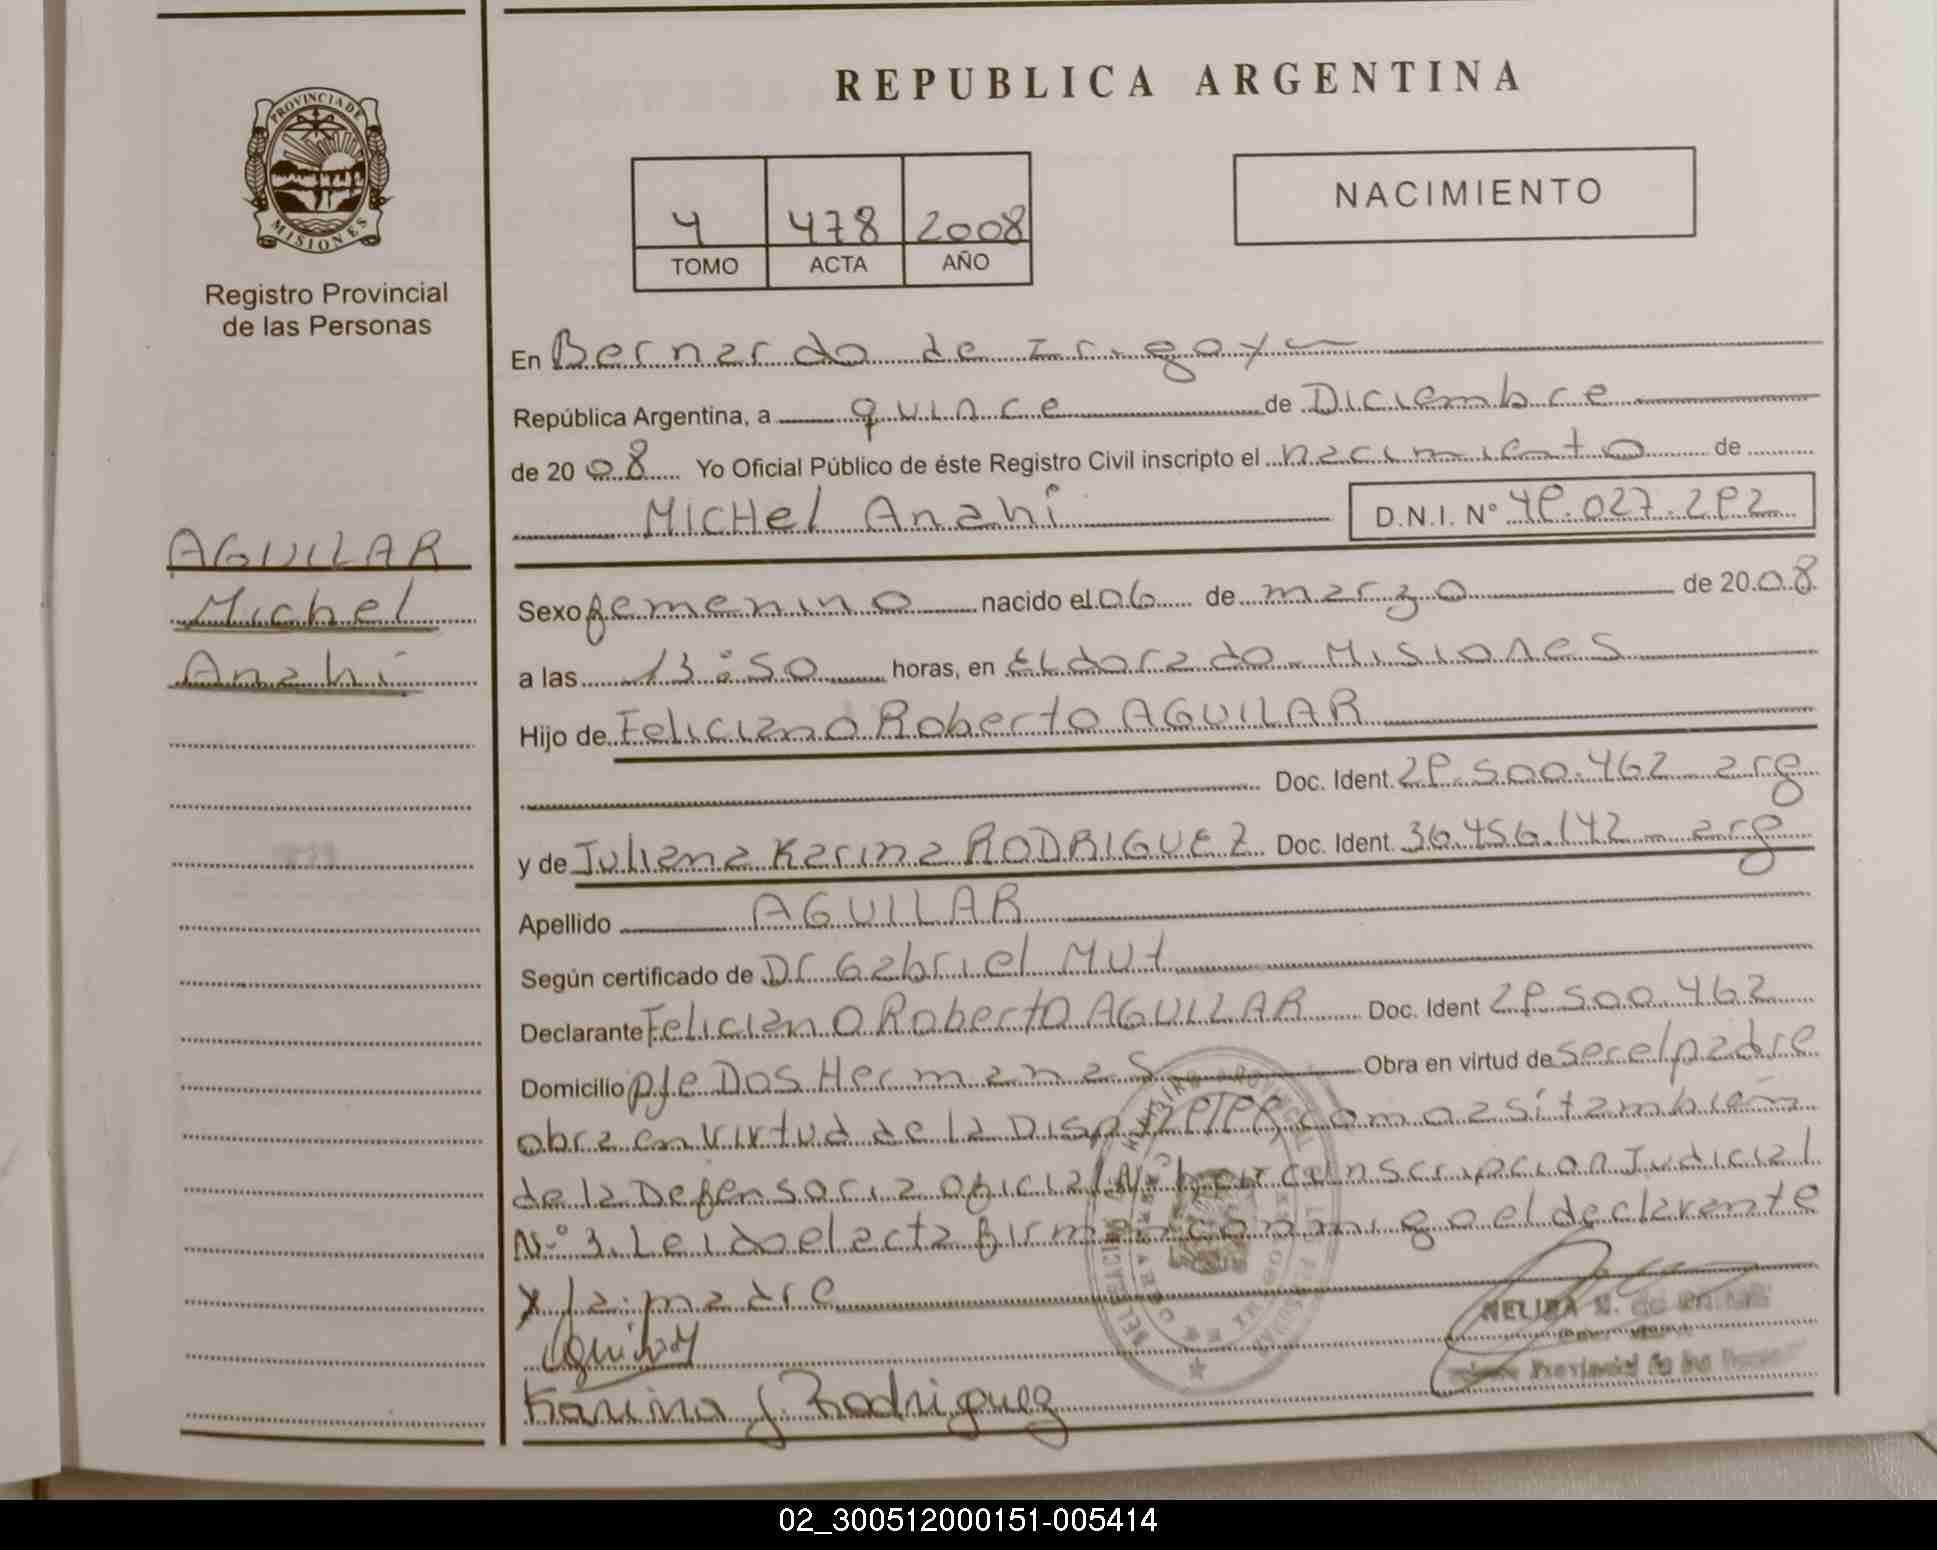 REPUBLICA ARGENTINA
PROVINCIA DE
MISIONES
Registro Provincial
de las Personas
NACIMIENTO
4 478 2008
TOMO ACTA AÑO
AGUILAR
Michel
Anahí
En Bernardo de Irigoyen
República Argentina, a quince de Diciembre
de 2008 Yo Oficial Público de éste Registro Civil inscripto el nacimiento de
MICHel Anahí D.N.I. N° 49.027.292
Sexo femenino nacido el 06 de marzo de 2008
a las 13:50 horas, en Eldorado Misiones
Hijo de Feliciano Roberto AGUILAR
Doc. Ident. 29.500.462 arg
y de Juliana Karina RODRIGUEZ Doc. Ident. 36.456.142 - arg
Apellido AGUILAR
Según certificado de Dr Gabriel Mut
Declarante Feliciano Roberto AGUILAR Doc. Ident 29.500.462
Domicilio pje Dos Hermanas Obra en virtud de ser el padre
obra en virtud de la Disp como así también
de la Defensoria oficial inscripcion Judicial
N° 3. Leido el acta firman conmigo el declarante
y la madre
Karina J. Rodriguez
NELIDA
Provincial de las
02_300512000151-005414